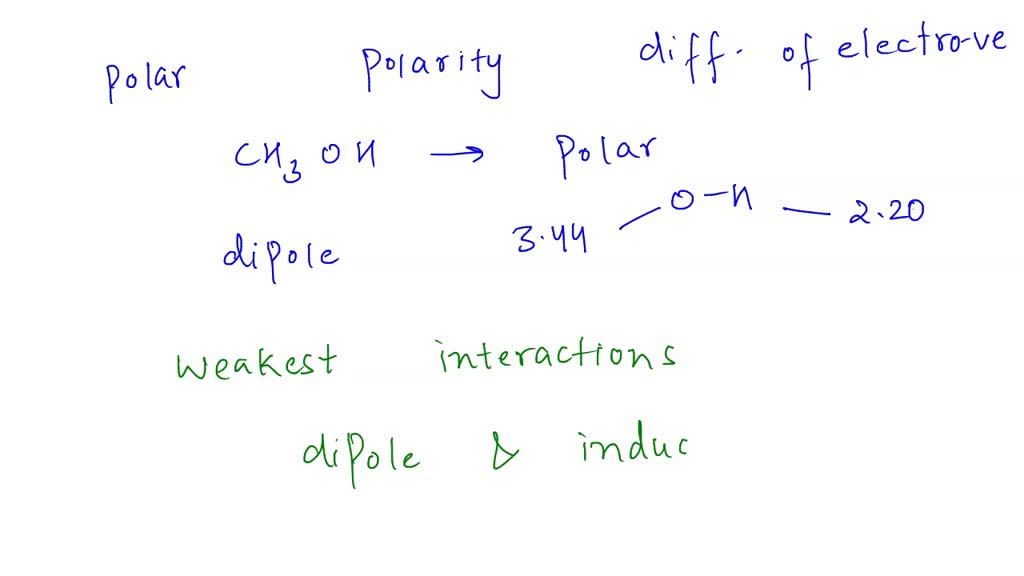 polar Polarity diff. of electro-ve
CH3 OH → Polar
O-H — 2.20
dipole 3.44 —
weakest interactions
dipole & induc